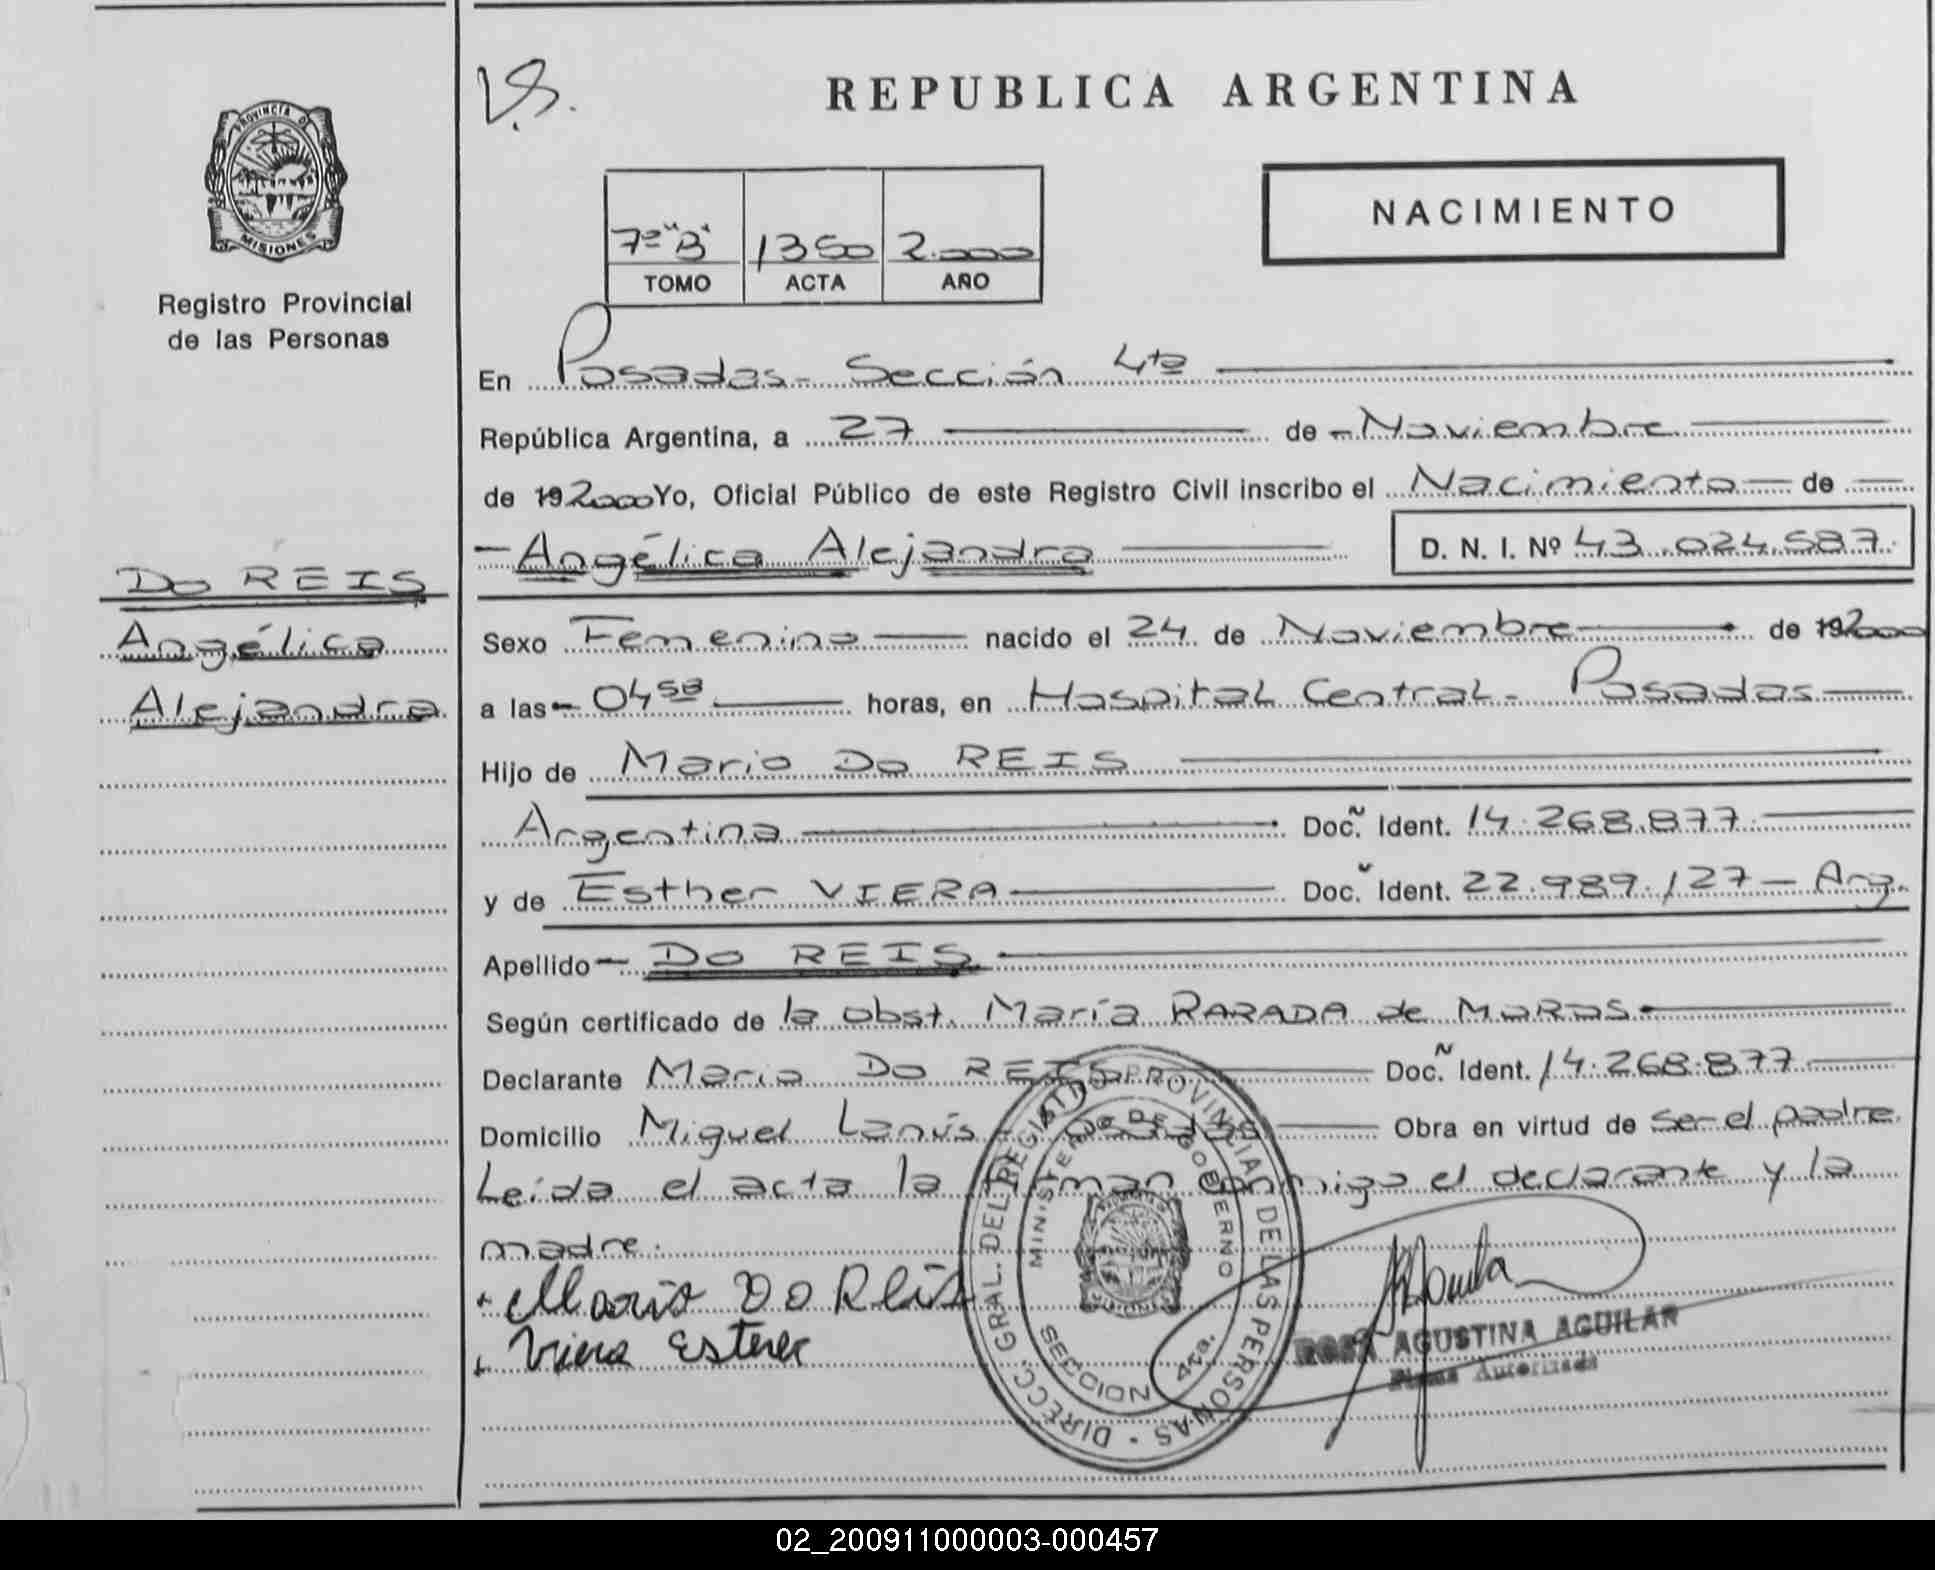 V.S.
REPUBLICA ARGENTINA
PROVINCIA DE
MISIONES
Registro Provincial
de las Personas
NACIMIENTO
7º "B" 1350 2.000
TOMO ACTA AÑO
En Posadas - Sección 4ta
República Argentina, a 27 de Noviembre
de 192000 Yo, Oficial Público de este Registro Civil inscribo el Nacimiento de
Angélica Alejandra D. N. I. Nº 43.024.587
Do REIS
Angélica
Alejandra
Sexo Femenino nacido el 24 de Noviembre de 192000
a las 04 58 horas, en Hospital Central - Posadas
Hijo de Mario Do REIS
Argentina Doc. Ident. 14.268.877
y de Esther VIERA Doc. Ident. 22.989.127 - Arg.
Apellido Do REIS
Según certificado de la obst. María RARADA de MoRAS
Declarante Mario Do REIS Doc. Ident. 14.268.877
Domicilio Miguel Lanús - Posadas Obra en virtud de ser el padre.
Leída el acta la firman conmigo el declarante y la
madre.
Mario Do Reis
Viera Ester
DIRECC. GRAL. DEL REGISTRO PROVINCIAL DE LAS PERSONAS
MINISTERIO DE GOBIERNO
SECCION 4ta.
ROSA AGUSTINA AGUILAR
Firma Autorizada
02_200911000003-000457